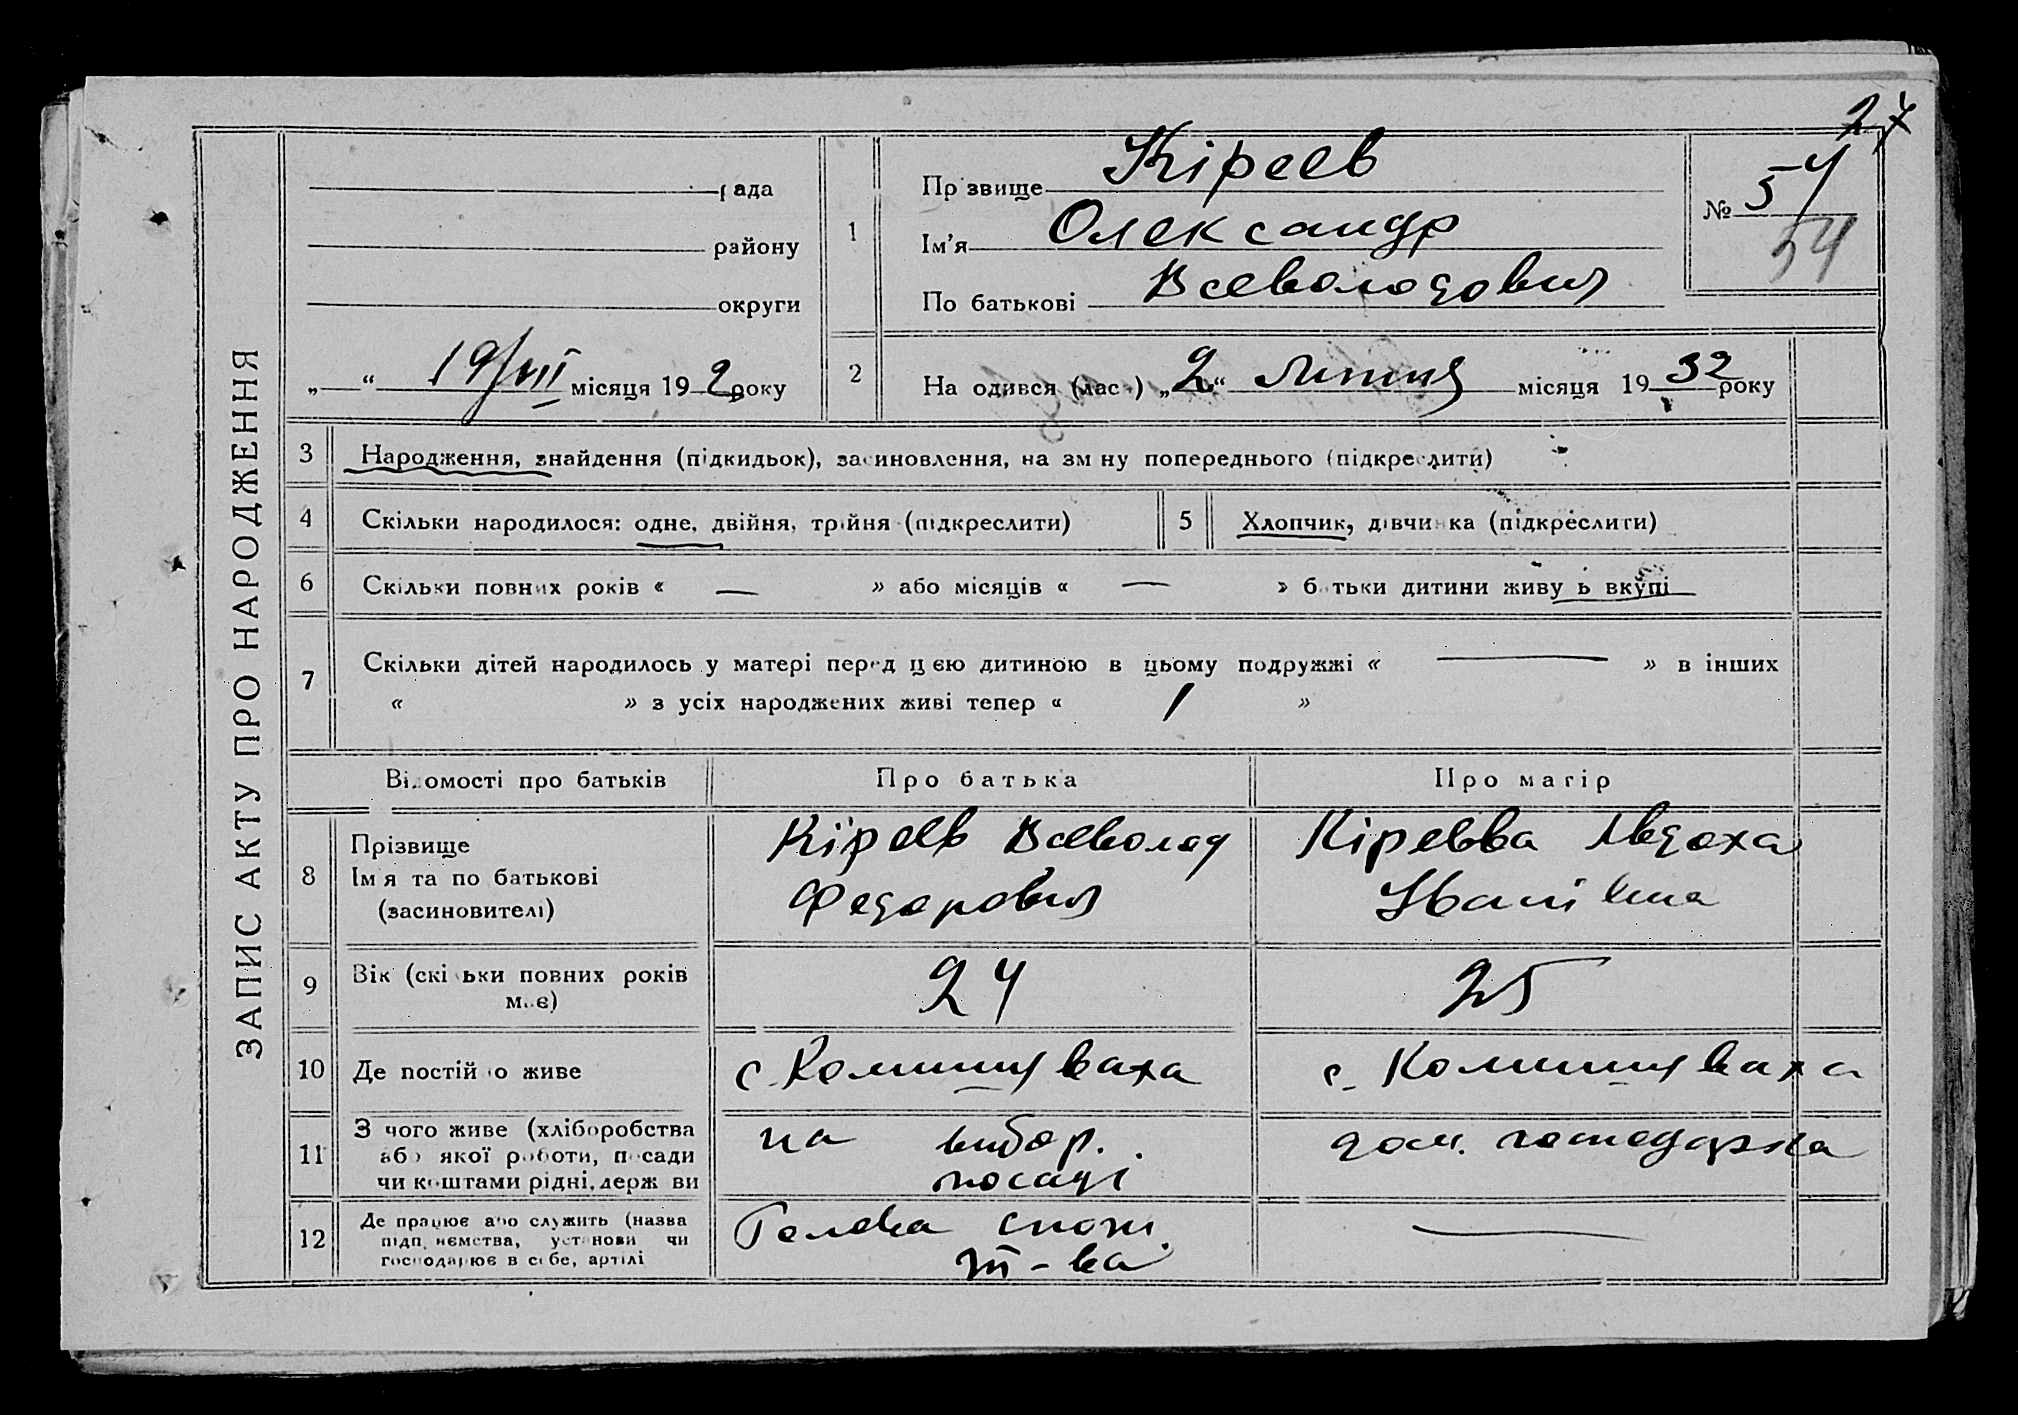 27
ЗАПИС АКТУ ПРО НАРОДЖЕННЯ
рада
району
округи
„ “ 19/VII місяця 19 2 року
1
Прізвище Кіреев
Ім’я Олександр
По батькові Всеволодович
№ 54
54
2
На одився (лась) „2“ Липня місяця 19 32 року
3 Народження, знайдення (підкидьок), засиновлення, на зміну попереднього (підкреслити)
4 Скільки народилося: одне, двійня, трійня (підкреслити)
5 Хлопчик, дівчинка (підкреслити)
6 Скільки повних років « — » або місяців « — » батьки дитини живуть вкупі
7 Скільки дітей народилось у матері перед цією дитиною в цьому подружжі « — » в інших
« » з усіх народжених живі тепер « 1 »
Відомості про батьків Про батька Про матір
8
Прізвище
Імя та по батькові
(засиновителі)
Кіреев Всеволод
Федорович
Кіреева Явдоха
Іванівна
9
Вік (скільки повних років
має)
24
25
10 Де постійно живе
с. Комишуваха
с. Комишуваха
11
З чого живе (хліборобства
або якої роботи, посади
чи коштами рідні, держави
на вибор.
посаді
дом. господарка
12
Де працює або служить (назва
підприємства, установи чи
господарює в себе, артілі
Голова спож.
т-ва
—